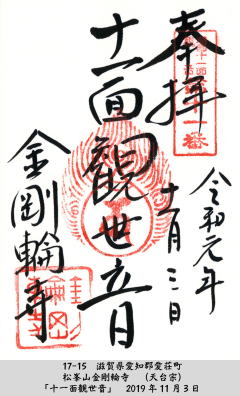 奉拝
十一面觀世音
令和元年
十一月三日
金剛輪寺
17-15 滋賀県愛知郡愛荘町
松峯山金剛輪寺 (天台宗)
「十一面観世音」 2019年11月3日